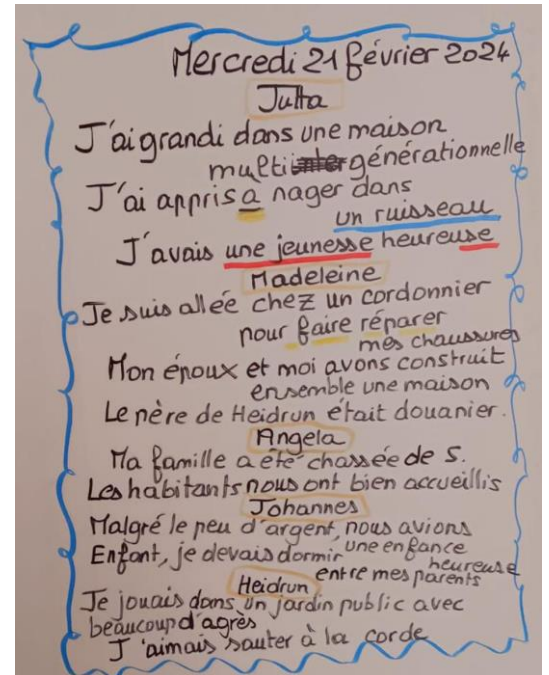 Mercredi 21 février 2024
Jutta
J'ai grandi dans une maison
multi générationnelle
J'ai appris à nager dans
un ruisseau
J'avais une jeunesse heureuse
Madeleine
Je suis allée chez un cordonnier
pour faire réparer
mes chaussures
Mon époux et moi avons construit
ensemble une maison
Le père de Heidrun était douanier.
Angela
Ma famille a été chassée de S.
Les habitants nous ont bien accueillis
Johannes
Malgré le peu d'argent, nous avions
une enfance
heureuse
Enfant, je devais dormir
entre mes parents
Heidrun
Je jouais dans un jardin public avec
beaucoup d'agrès
J'aimais sauter à la corde